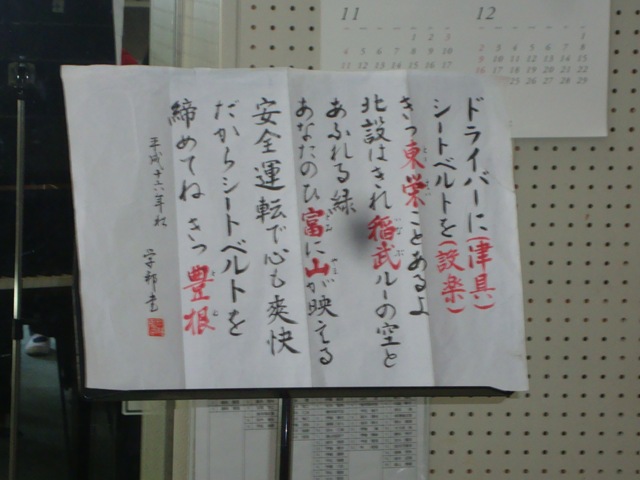 ドライバーに(津具)
シートベルトを(設楽)
きっ東栄ことあるよ
北設はきれ稲武ルーの空と
あふれる緑
あなたのひ富に山が映える
安全運転で心も爽快
だからシートベルトを
締めてね きっ豊根
平成十六年秋
11
12